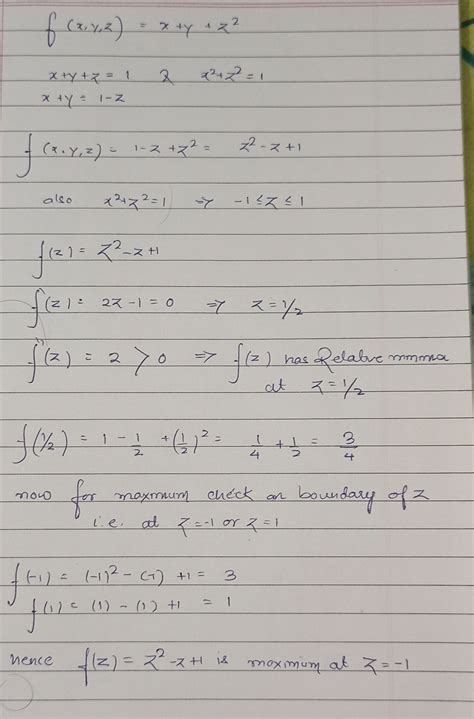 f (x,y,z) = x+y+z²
x+y+z = 1 & x²+z²=1
x+y = 1-z
f (x,y,z) = 1-z+z² = z²-z+1
also x²+z²=1 ⇒ -1≤z≤1
f(z) = z²-z+1
f'(z) = 2z-1=0 ⇒ z=1/2
f''(z) = 2 > 0 ⇒ f(z) has Relative minima
at z=1/2
f(1/2) = 1 - 1/2 + (1/2)² = 1/4 + 1/2 = 3/4
now for maximum check on boundary of z
i.e. at z=-1 or z=1
f(-1) = (-1)² - (-1) +1 = 3
f(1) = (1) - (1) +1 = 1
hence f(z) = z²-z+1 is maximum at z=-1